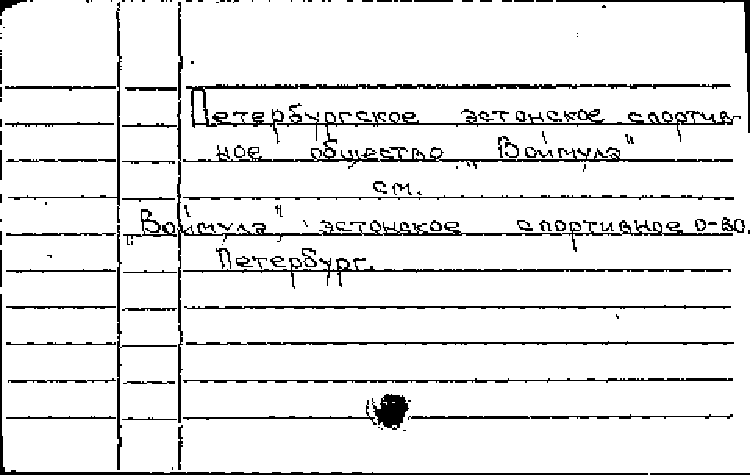 Петербургское эстонское спортив-
ное общество „Воймула"
см.
„Воймула" эстонское спортивное о-во.
Петербург.